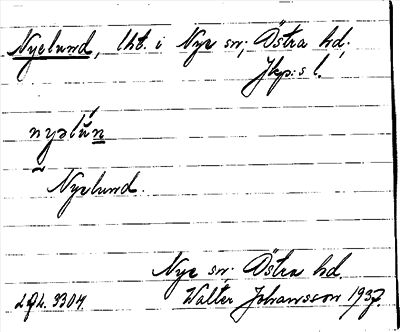 Nyelund, lht. i Nye sn; Östra hd;
Jkp:s l.
nyəlún
~ Nyelund.
Nye sn; Östra hd.
Walter Johansson 1937.